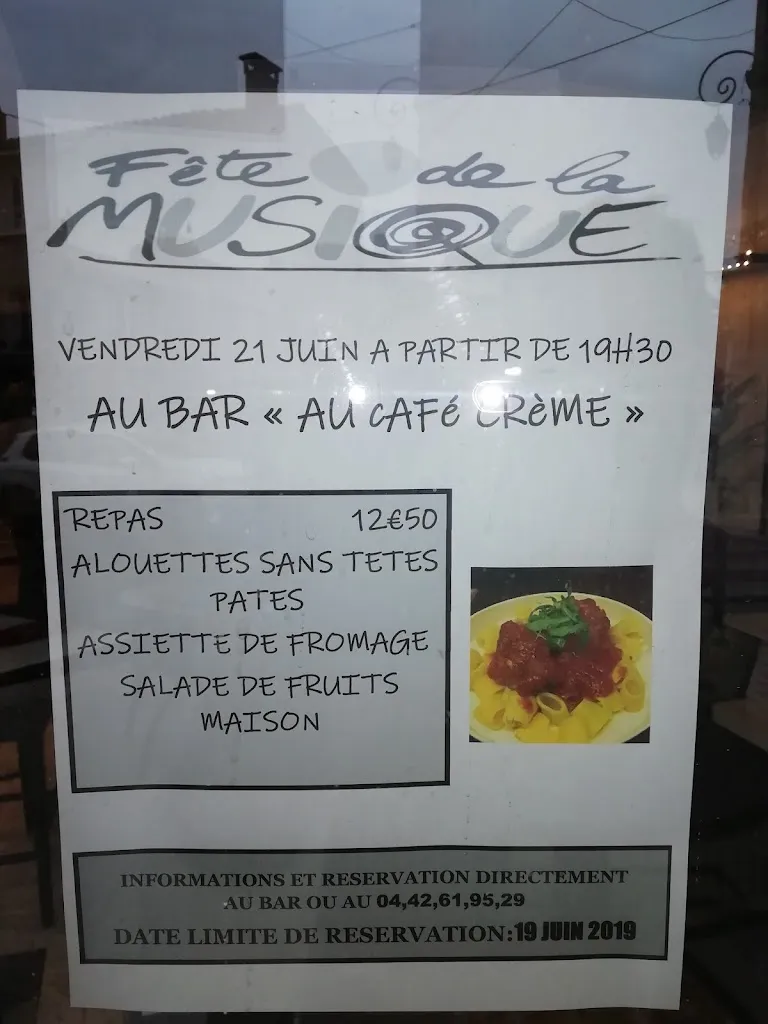 Fête de la
MUSIQUE
VENDREDI 21 JUIN A PARTIR DE 19H30
AU BAR « AU CAFé CRèME »
REPAS 12€50
ALOUETTES SANS TETES
PATES
ASSIETTE DE FROMAGE
SALADE DE FRUITS
MAISON
INFORMATIONS ET RESERVATION DIRECTEMENT
AU BAR OU AU 04,42,61,95,29
DATE LIMITE DE RESERVATION:19 JUIN 2019